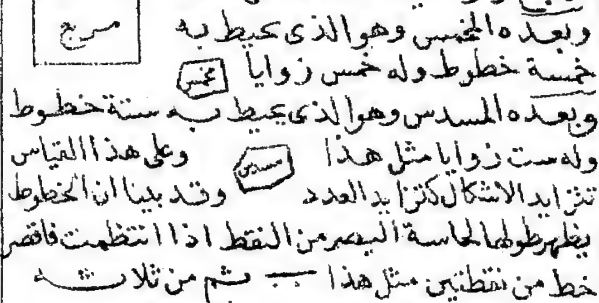 مربع
وبعده المخمس وهو الذى يحيط به
خمسة خطوط وله خمس زوايا مخمس
وبعده المسدس وهو الذى يحيط به ستة خطوط
وله ست زوايا مثل هذا مسدس وعلى هذا القياس
تتزايد الاشكال كتزايد العدد وقد بينا ان الخطوط
يظهر طولها لحاسة البصر من النقط اذا انتظمت فاقصر
خط من نقطتين مثل هذا ثم من ثلاثة